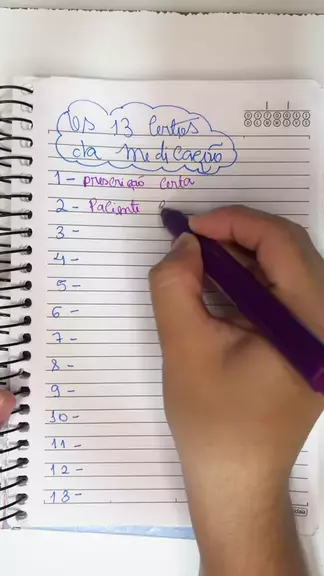 Os 13 Certos
da medicação
1 - prescrição certa
2 - Paciente
3 -
4 -
5 -
6 -
7 -
8 -
9 -
10 -
11 -
12 -
13 -